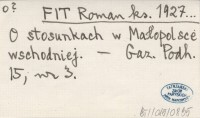 FIT Roman ks. 1927...
O stosunkach w Małopolsce
wschodniej. — Gaz. Podh.
15, nr 3.